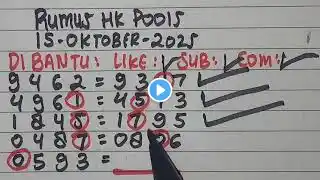 RUMUS HK POOLS
15-OKTOBER-2025
DI BANTU: LIKE: ✓ SUB: ✓ COM: ✓
9 4 6 2 = 9 3 0 7
4 9 6 1 = 4 5 1 3
1 8 4 5 = 1 7 9 5
0 4 8 7 = 0 8 0 6
0 5 9 3 =